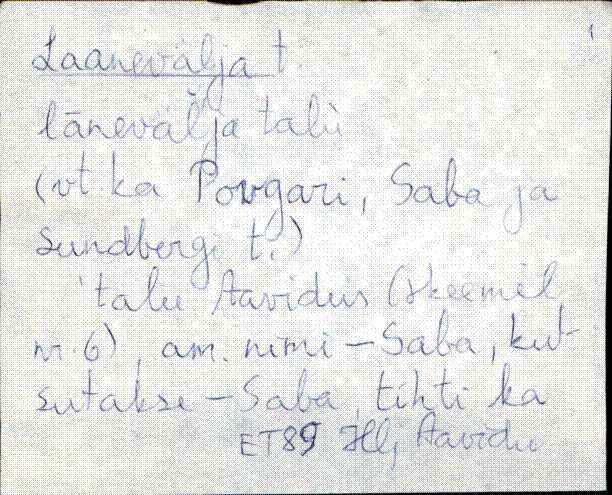 1
Laanevälja t.
lānevälja talù
(vt. ka Povgari, Saba ja
Sundbergi t.)
'talu Aavidus (skeemil
nr. 6), am. nimi - Saba, kut-
sutakse - Saba, tihti ka
ET89 Hlj Aavidu